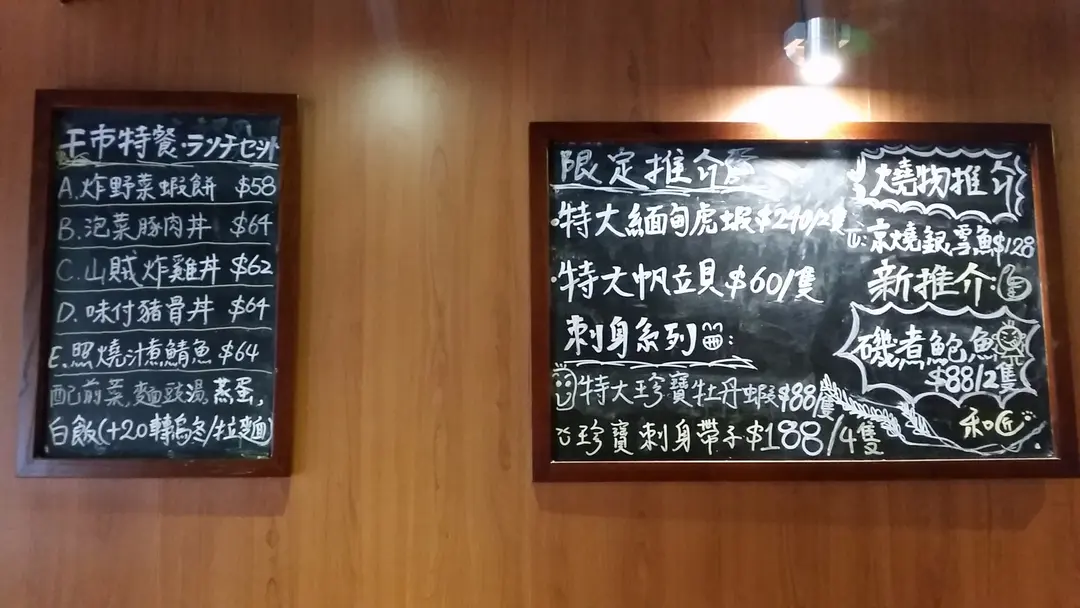 午市特餐·ランチセット
A.炸野菜蝦餅 $58
B.泡菜豚肉丼 $64
C.山賊炸雞丼 $62
D.味付豬骨丼 $64
E.照燒汁煮鯖魚 $64
配前菜,麵豉湯,蒸蛋,
白飯(+20轉烏冬/拉麵)
限定推介
·特大緬甸虎蝦$290/2隻
·特大帆立貝$60/隻
刺身系列:
特大珍寶牡丹蝦$88/隻
珍寶刺身帶子$188/4隻
燒物推介
京燒銀雪魚$128
新推介:
磯煮鮑魚
$88/2隻
和匠